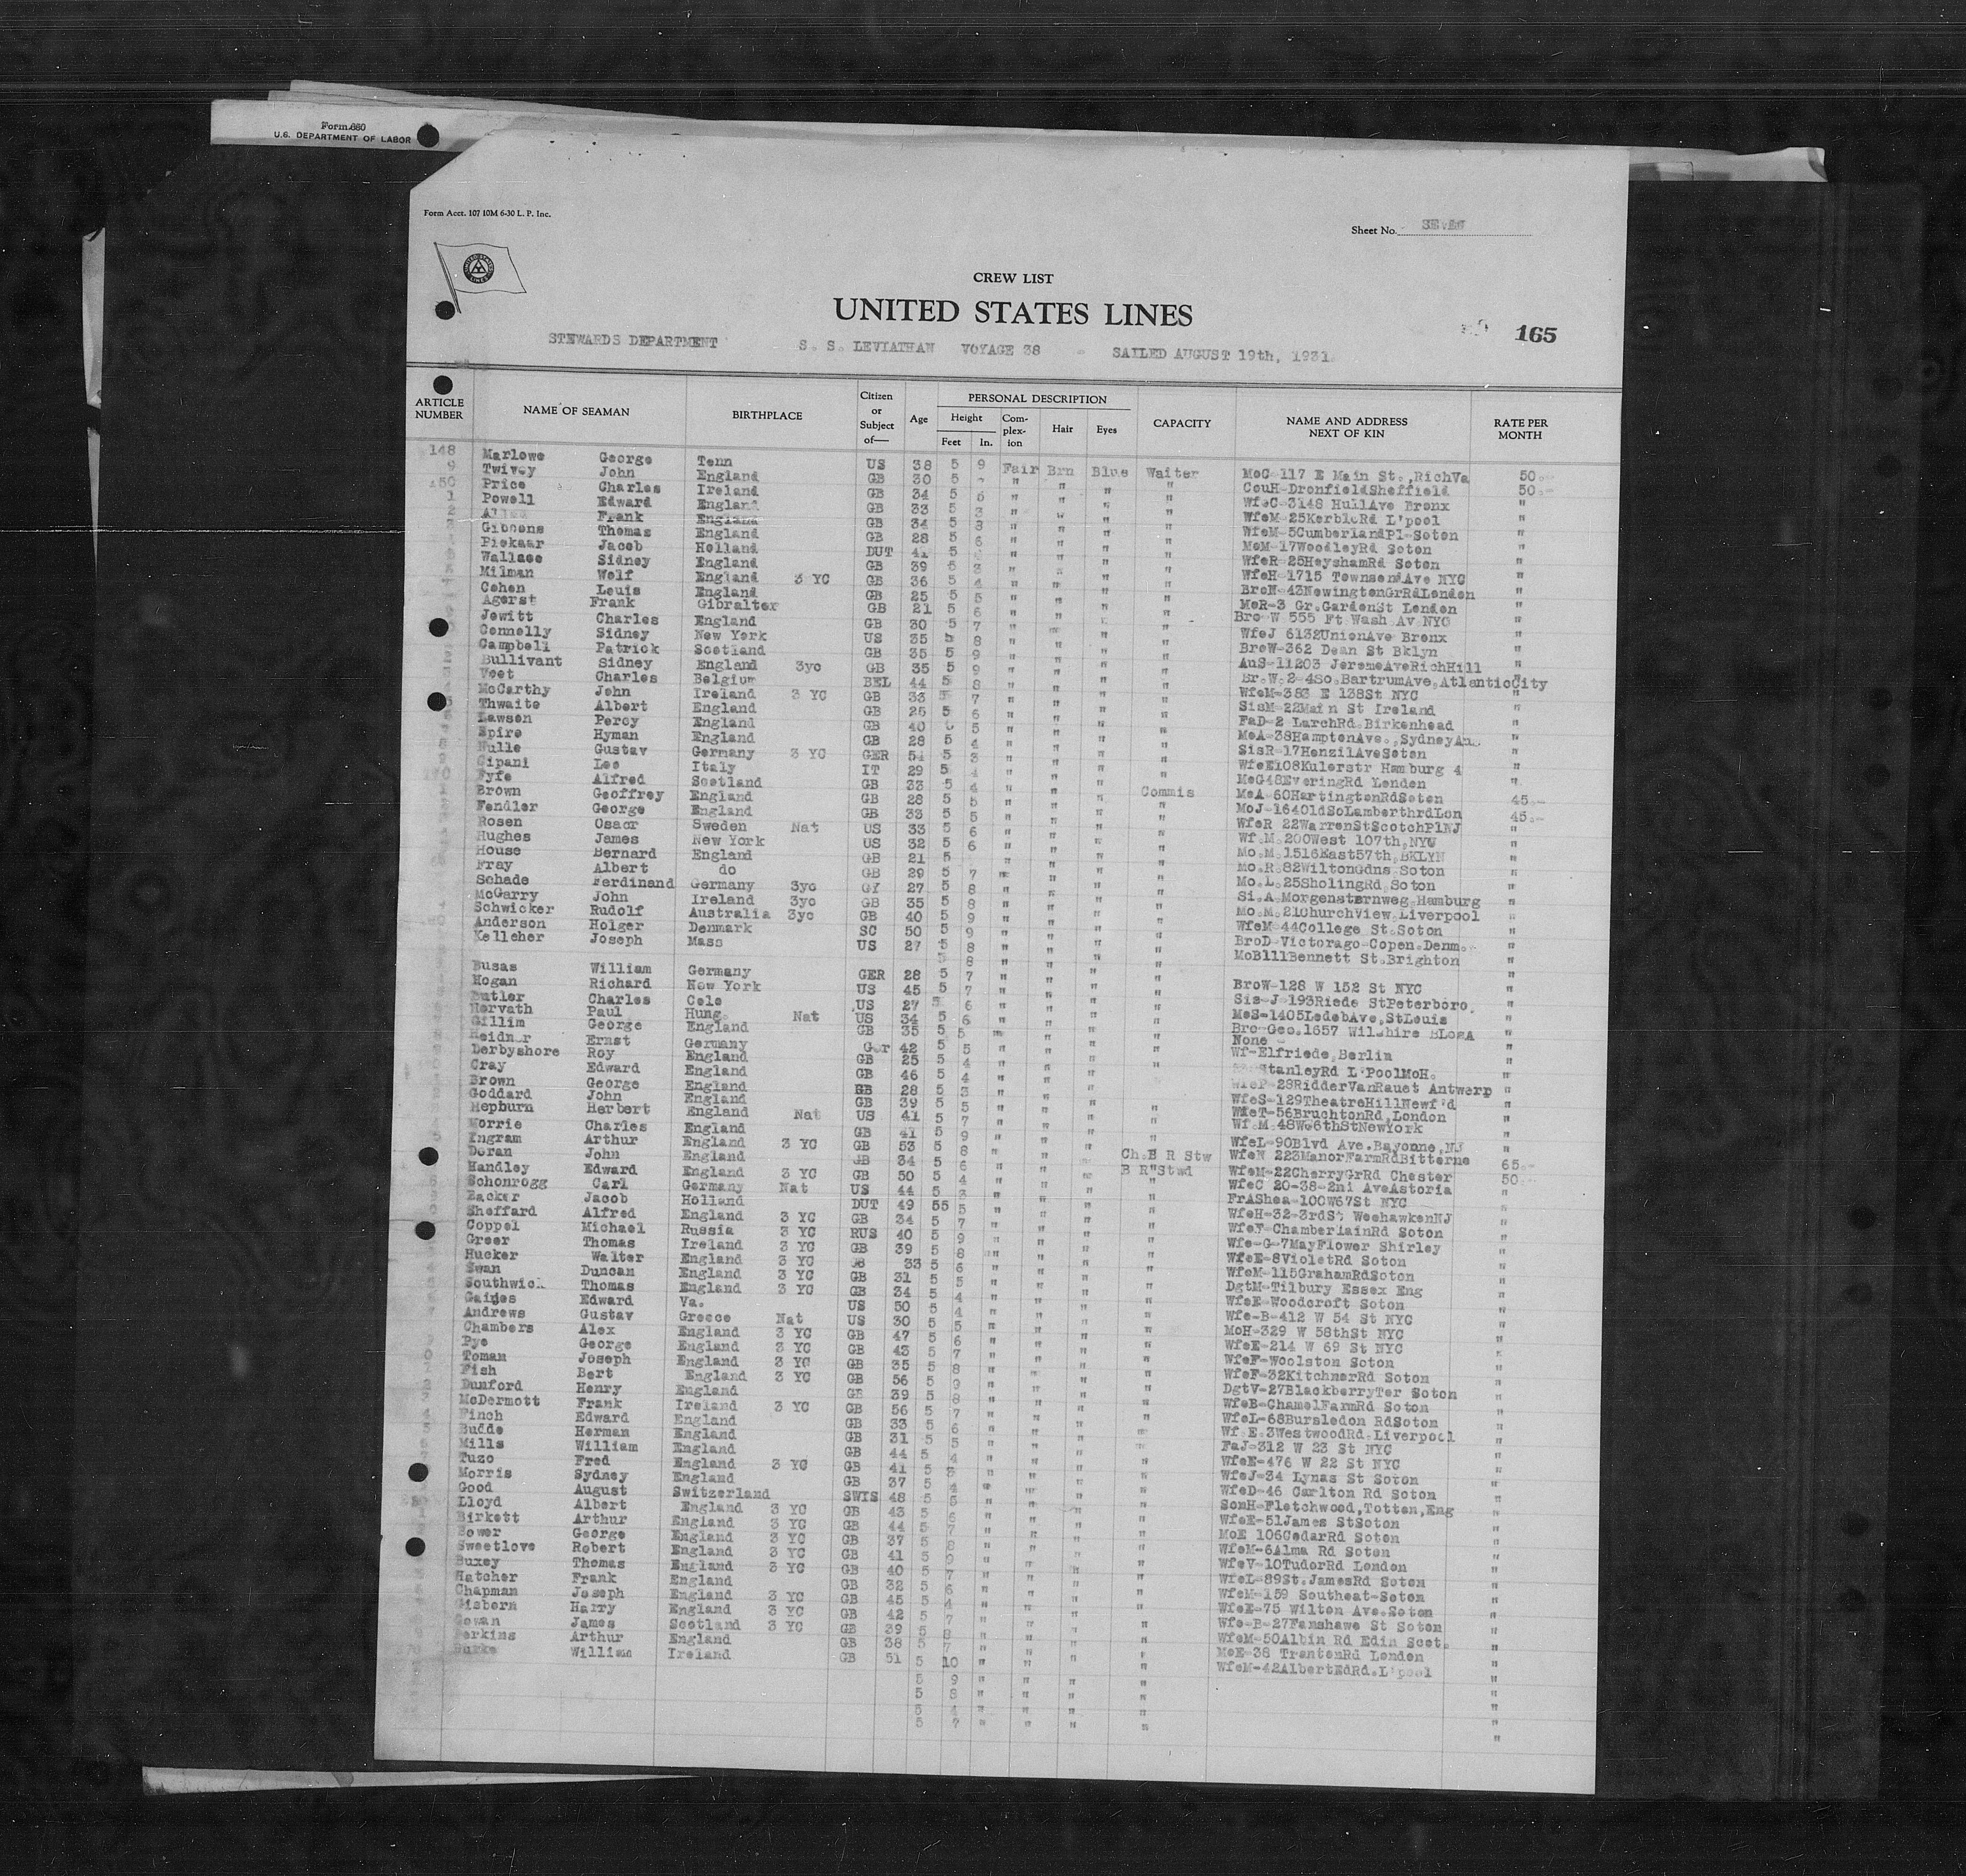 Form 680
U.S. DEPARTMENT OF LABOR
Form Acct. 107 10M 6-30 L. P. Inc.
Sheet No.
CREW LIST
UNITED STATES LINES
165
STEWARDS DEPARTMENT S. S. LEVIATHAN VOYAGE 38 - SAILED AUGUST 19th, 1931
ARTICLE NUMBER NAME OF SEAMAN BIRTHPLACE Citizen or Subject of— Age PERSONAL DESCRIPTION Height Feet In. Com-plex-ion Hair Eyes CAPACITY NAME AND ADDRESS NEXT OF KIN RATE PER MONTH
148 Marlowe George Tenn US 38 5 9 Fair Brn Blue Waiter MoC-117 E Main St.,RichVa 50.-
9 Twivey John England GB 30 5 " " " " CouH-DronfieldSheffield 50.-
Price Charles Ireland GB 34 5 " " " " WfeC-3148 HullAve Bronx "
1 Powell Edward England GB 33 5 3 " " " " WfeM-25KerbleRd L'pool "
2 Frank England GB 34 5 8 " " " " WfeM-5CumberlandPl-Soton "
Gibbons Thomas England GB 28 5 6 " " " " MoM-17WoodleyRd Soton "
Piekaar Jacob Holland DUT 41 5 " " " " WfeR-25HeyshamRd Soton "
Wallace Sidney England GB 39 5 3 " " " " WfeH-1715 TownsendAve NYC "
Milman Wolf England 3 YC GB 36 5 4 " " " " BroN-43NewingtonGrRdLondon "
Cohen Louis England GB 25 5 5 " " " " MoR-3 Gr.GardenSt London "
Agerst Frank Gibralter GB 21 5 6 " " " " Bro W 555 Ft Wash Av NYC "
Jewitt Charles England GB 30 5 7 " " " " WfeJ 6132UnionAve Bronx "
Connolly Sidney New York US 35 5 8 " " " " BroW-362 Dean St Bklyn "
Campbell Patrick Scotland GB 35 5 9 " " " " AuS-11203 JeromeAveRichHill "
Bullivant Sidney England 3yc GB 35 5 9 " " " " Br.W.2-4So.BartrumAve,AtlanticCity "
Voet Charles Belgium BEL 44 5 8 " " " " WfeM-383 E 138St NYC "
McCarthy John Ireland 3 YC GB 33 5 7 " " " " SisM-22Main St Ireland "
Thwaite Albert England GB 25 5 6 " " " " FaD-2 LarchRd.Birkenhead "
Lawson Percy England GB 40 5 " " " " MoA-38HamptonAve.,SydneyAu. "
Spiro Hyman England GB 28 5 4 " " " " SisR-17HenzilAveSoton "
Nulle Gustav Germany 3 YC GER 54 5 3 " " " " WfeE108Kulerstr Hamburg 4 "
Cipani Leo Italy IT 29 5 4 " " " " MoG48EveringRd London "
Fyfe Alfred Scotland GB 33 5 4 " " " Commis MoA-60HartingtonRdSoton 45.-
Brown Geoffrey England GB 28 5 5 " " " " MoJ-164OldSoLamberthrdLon 45.-
Fendler George England GB 33 5 5 " " " " WfeR 22WarrenStScotchPlNJ "
Rosen Oscar Sweden Nat US 33 5 6 " " " " Wf.M.200West 107th,NYC "
Hughes James New York US 32 5 6 " " " " Mo.M.1516East57th,BKLYN "
House Bernard England GB 21 5 " " " " Mo.R.82WiltonGdns Soton "
Fray Albert do GB 29 5 7 " " " " Mo.L.25SholingRd Soton "
Schade Ferdinand Germany 3yc GY 27 5 8 " " " " Si.A.Morgensternweg.Hamburg "
McGarry John Ireland 3yc GB 35 5 8 " " " " Mo.M.21ChurchView.Liverpool "
Schwicker Rudolf Australia 3yc GB 40 5 9 " " " " WfeM-44College St.Soton "
Anderson Holger Denmark SC 50 5 9 " " " " BroD-Victorago-Copen.Denm. "
Kelleher Joseph Mass US 27 5 8 " " " " MoB111Bennett St.Brighton "
5 8 " " " " "
Busas William Germany GER 28 5 7 " " " " BroW-128 W 152 St NYC "
Hogan Richard New York US 45 5 7 " " " " Sis-J-193Riede StPeterboro. "
Butler Charles Colo US 27 5 6 " " " " MoS-1405LedebAve,StLouis "
Horvath Paul Hung. Nat US 34 5 6 " " " " Bro-Geo.1657 Wilshire "
Gillim George England GB 35 5 5 " " " " None - "
Heidner Ernst Germany Ger 42 5 5 " " " " Wf-Elfriede,Berlin "
Derbyshore Roy England GB 25 5 4 " " " " StanleyRd L'PoolMoH. "
Cray Edward England GB 46 5 4 " " " WfeP-28RidderVanRauet Antwerp "
Brown George England GB 28 5 3 " " " WfeS-129TheatreHillNewf'd "
Goddard John England GB 39 5 5 " " " " WfeT-56BruchtonRd,London "
Hepburn Herbert England Nat US 41 5 7 " " " " Wf.M.48W66thStNewYork "
Morris Charles England GB 41 5 9 " " " " WfeL-90Blvd Ave.Bayonne,NJ "
Ingram Arthur England 3 YC GB 53 5 8 " " " Ch.B R Stw WfeN 223ManorFarmRdBitterne 65.-
Doran John England GB 34 5 6 " " " B R Stwd WfeM-22CherryGrRd Chester 50.-
Handley Edward England 3 YC GB 50 5 4 " " " " WfeC 20-38-2nd AveAstoria "
Schonrogg Carl Germany Nat US 44 5 3 " " " " FrAShea-100W67St NYC "
Backer Jacob Holland DUT 49 55 5 " " " " WfeH-32-3rdSt WeehawkenNJ "
Sheffard Alfred England 3 YC GB 34 5 7 " " " " WfeF-ChamberlainRd Soton "
Coppel Michael Russia 3 YC RUS 40 5 9 " " " " Wfe-G-7MayFlower Shirley "
Greer Thomas Ireland 3 YC GB 39 5 8 " " " " WfeE-8VioletRd Soton "
Hucker Walter England 3 YC 33 5 6 " " " " WfeM-115GrahamRdSoton "
Swan Duncan England 3 YC GB 31 5 5 " " " " DgtM-Tilbury Essex Eng "
Southwick Thomas England 3 YC GB 34 5 4 " " " " WfeE-Woodcroft Soton "
Gaines Edward Va. US 50 5 4 " " " " Wfe-B-412 W 54 St NYC "
Andrews Gustav Greece Nat US 30 5 5 " " " " MoH-329 W 58thSt NYC "
Chambers Alex England 3 YC GB 47 5 6 " " " " WfeE-214 W 69 St NYC "
Pye George England 3 YC GB 43 5 7 " " " " WfeF-Woolston Soton "
Toman Joseph England 3 YC GB 35 5 8 " " " " WfeF-32KitchnerRd Soton "
Fish Bert England 3 YC GB 56 5 9 " " " " DgtV-27BlackberryTer Soton "
Dunford Henry England GB 39 5 8 " " " " WfeB-ChamelFarmRd Soton "
McDermott Frank Ireland 3 YC GB 56 5 7 " " " " WfeL-68Bursledon RdSoton "
Finch Edward England GB 33 5 6 " " " " Wf.E.3WestwoodRd.Liverpool "
Budde Herman England GB 31 5 5 " " " " FaJ-312 W 23 St NYC "
Mills William England GB 44 5 4 " " " " WfeE-476 W 22 St NYC "
Tuzo Fred England 3 YC GB 41 5 3 " " " " WfeJ-34 Lynas St Soton "
Morris Sydney England GB 37 5 4 " " " " WfeD-46 Carlton Rd Soton "
Good August Switzerland SWIS 48 5 5 " " " " SonH-Fletchwood,Totten,Eng "
Lloyd Albert England 3 YC GB 43 5 6 " " " " WfeE-51James StSoton "
Birkett Arthur England 3 YC GB 44 5 7 " " " " MoE 106CedarRd Soton "
Bower George England 3 YC GB 37 5 8 " " " " WfeM-6Alma Rd Soton "
Sweetlove Robert England 3 YC GB 41 5 9 " " " " WfeV-10TudorRd London "
Buxey Thomas England 3 YC GB 40 5 7 " " " " WfeL-89St.JamesRd Soton "
Hatcher Frank England GB 32 5 6 " " " " WfeM-159 Southeat-Soton "
Chapman Joseph England 3 YC GB 45 5 4 " " " " WfeE-75 Wilton Ave.Soton "
Gisborn Harry England 3 YC GB 42 5 7 " " " " Wfe-B-27Fanshawe St Soton "
Gowan James Scotland 3 YC GB 39 5 8 " " " " WfeM-50Albin Rd Edin Scot. "
Perkins Arthur England GB 38 5 7 " " " " MoE-38 TrantonRd London "
Burke William Ireland GB 51 5 10 " " " " WfeM-42AlbertEdRd.L'pool "
5 9 " " " " "
5 8 " " " " "
5 4 " " " " "
5 7 " " " " "